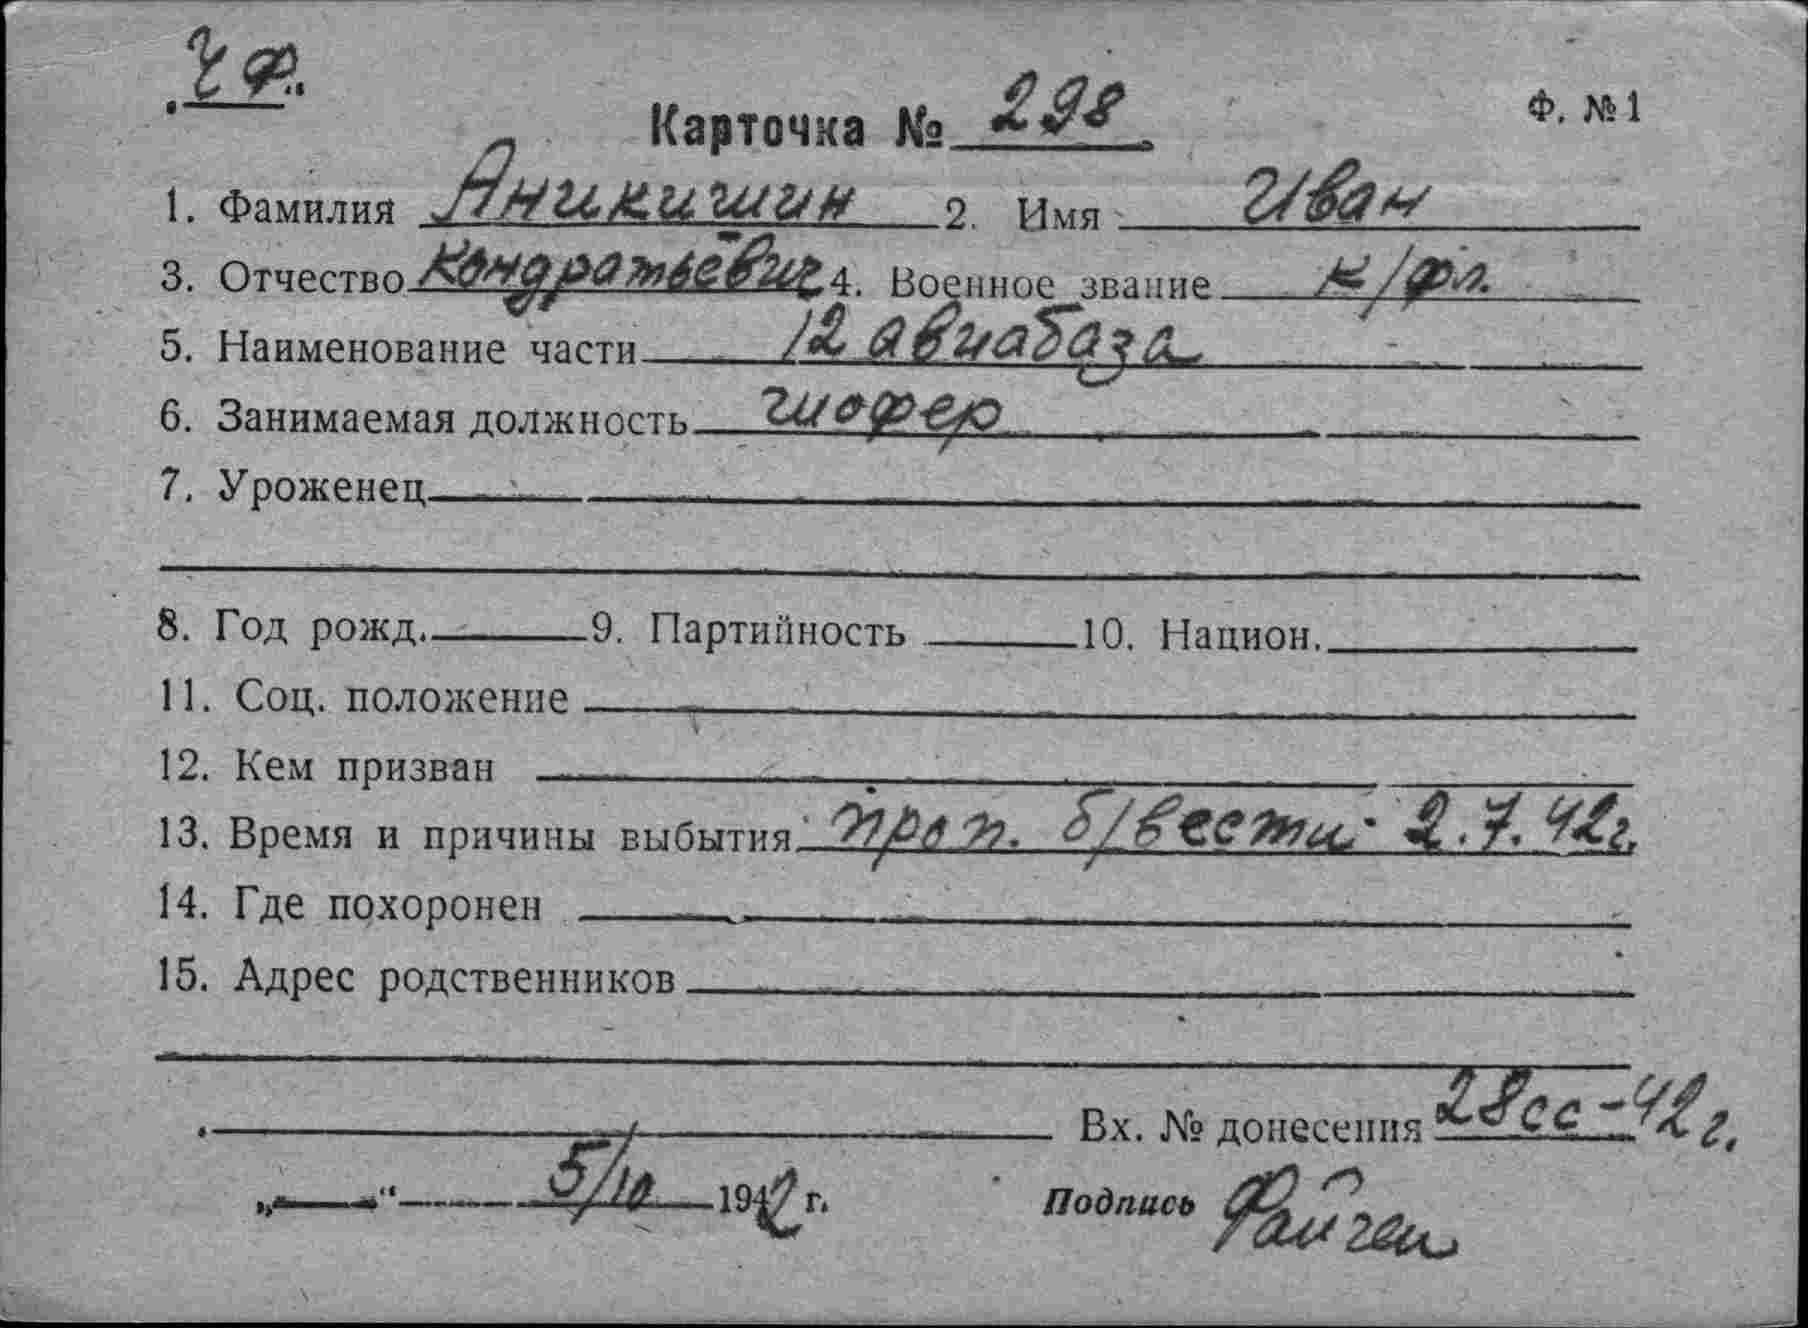 ч ф.
Карточка № 298
Ф. №1
1. Фамилия Аникишин 2. Имя Иван
3. Отчество Кондратьевич 4. Военное звание к/фл.
5. Наименование части 12 авиабаза
6. Занимаемая должность шофер
7. Уроженец
8. Год рожд. 9. Партийность 10. Национ.
11. Соц. положение
12. Кем призван
13. Время и причины выбытия проп. б/вести 2.7.42г.
14. Где похоронен
15. Адрес родственников
Вх. № донесения 28сс-42г.
„ “ 5/10 1942 г. Подпись